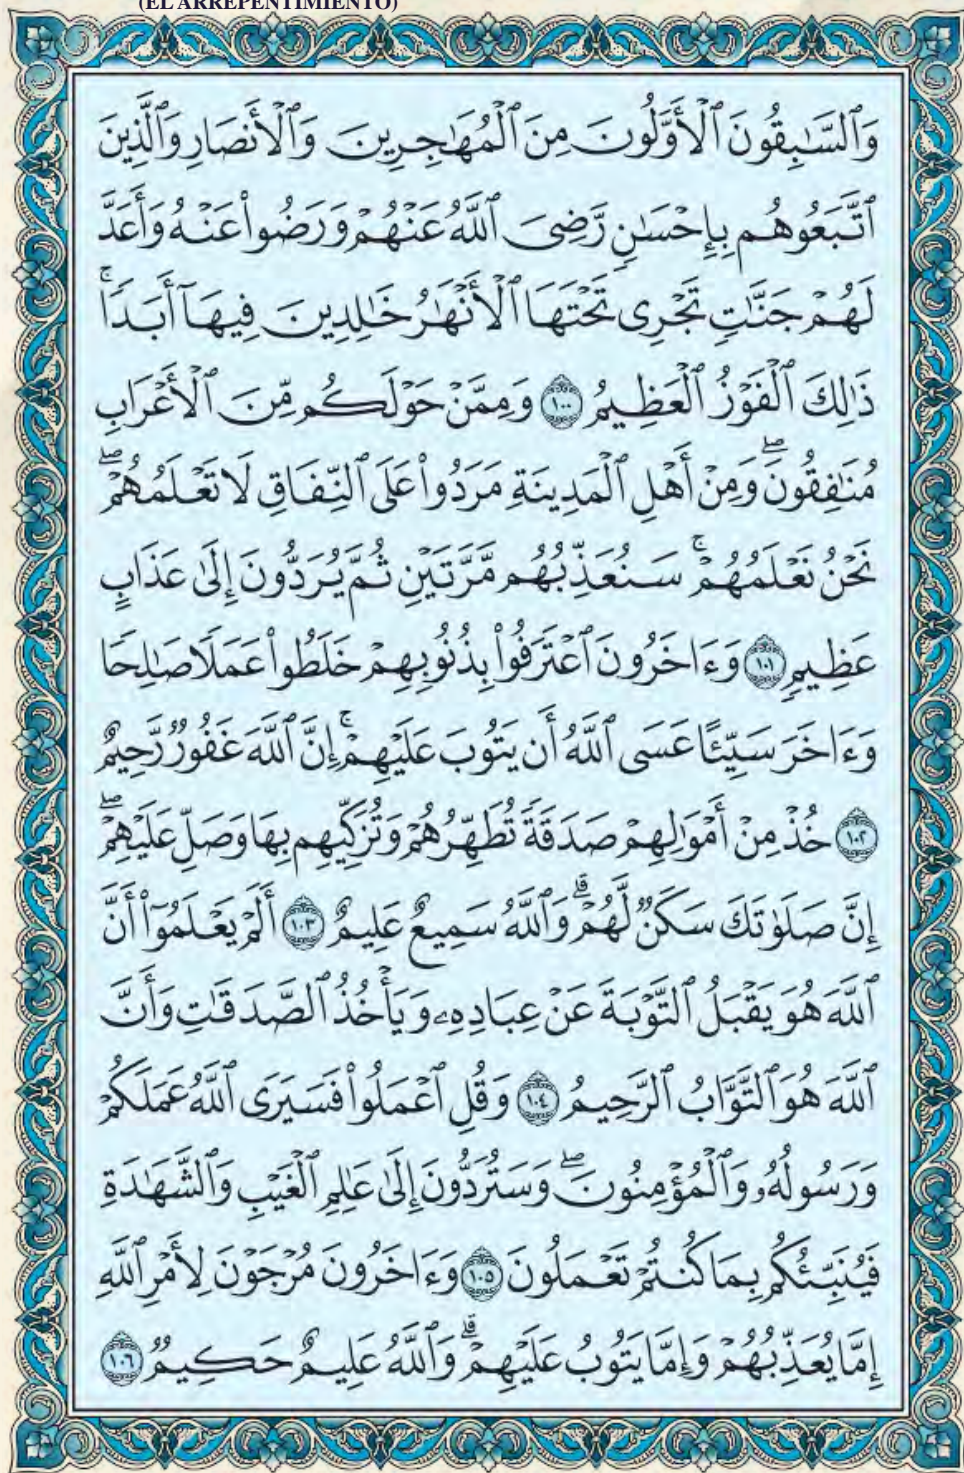 (EL ARREPENTIMIENTO)
وَٱلسَّـٰبِقُونَ ٱلْأَوَّلُونَ مِنَ ٱلْمُهَـٰجِرِينَ وَٱلْأَنصَارِ وَٱلَّذِينَ
ٱتَّبَعُوهُم بِإِحْسَـٰنٍ رَّضِىَ ٱللَّهُ عَنْهُمْ وَرَضُوا۟ عَنْهُ وَأَعَدَّ
لَهُمْ جَنَّـٰتٍ تَجْرِى تَحْتَهَا ٱلْأَنْهَـٰرُ خَـٰلِدِينَ فِيهَآ أَبَدًا ۚ
ذَٰلِكَ ٱلْفَوْزُ ٱلْعَظِيمُ ١٠٠ وَمِمَّنْ حَوْلَكُم مِّنَ ٱلْأَعْرَابِ
مُنَـٰفِقُونَ ۖ وَمِنْ أَهْلِ ٱلْمَدِينَةِ مَرَدُوا۟ عَلَى ٱلنِّفَاقِ لَا تَعْلَمُهُمْ ۖ
نَحْنُ نَعْلَمُهُمْ ۚ سَنُعَذِّبُهُم مَّرَّتَيْنِ ثُمَّ يُرَدُّونَ إِلَىٰ عَذَابٍ
عَظِيمٍ ١٠١ وَءَاخَرُونَ ٱعْتَرَفُوا۟ بِذُنُوبِهِمْ خَلَطُوا۟ عَمَلًا صَـٰلِحًا
وَءَاخَرَ سَيِّئًا عَسَى ٱللَّهُ أَن يَتُوبَ عَلَيْهِمْ ۚ إِنَّ ٱللَّهَ غَفُورٌ رَّحِيمٌ
١٠٢ خُذْ مِنْ أَمْوَٰلِهِمْ صَدَقَةً تُطَهِّرُهُمْ وَتُزَكِّيهِم بِهَا وَصَلِّ عَلَيْهِمْ ۖ
إِنَّ صَلَوٰتَكَ سَكَنٌ لَّهُمْ ۗ وَٱللَّهُ سَمِيعٌ عَلِيمٌ ١٠٣ أَلَمْ يَعْلَمُوٓا۟ أَنَّ
ٱللَّهَ هُوَ يَقْبَلُ ٱلتَّوْبَةَ عَنْ عِبَادِهِۦ وَيَأْخُذُ ٱلصَّدَقَـٰتِ وَأَنَّ
ٱللَّهَ هُوَ ٱلتَّوَّابُ ٱلرَّحِيمُ ١٠٤ وَقُلِ ٱعْمَلُوا۟ فَسَيَرَى ٱللَّهُ عَمَلَكُمْ
وَرَسُولُهُۥ وَٱلْمُؤْمِنُونَ ۖ وَسَتُرَدُّونَ إِلَىٰ عَـٰلِمِ ٱلْغَيْبِ وَٱلشَّهَـٰدَةِ
فَيُنَبِّئُكُم بِمَا كُنتُمْ تَعْمَلُونَ ١٠٥ وَءَاخَرُونَ مُرْجَوْنَ لِأَمْرِ ٱللَّهِ
إِمَّا يُعَذِّبُهُمْ وَإِمَّا يَتُوبُ عَلَيْهِمْ ۗ وَٱللَّهُ عَلِيمٌ حَكِيمٌ ١٠٦